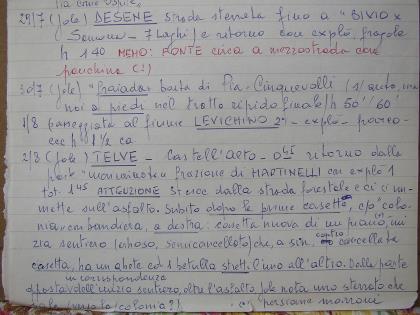 29/7 (sole) DESENE strada sterrata fino a "BIVIO x
Samone - 7 Laghi) e ritorno con explo, fragole
h 1 40 MEMO: FONTE circa a mezzastrada con
panchina (!)
30/7 (sole) baita di Pra-Cinquevalli (1/auto,
noi a piedi nel tratto ripido finale/h 50'/60'
1/8 passeggiata al fiume LEVICHINO 2° - explo -
h 1/2 ca
2/8 (sole) TELVE - Castell'alto - 0 45 ritorno dalla
parte frazione di MARTINELLI con explo 1
tot. 1 45 ATTENZIONE Si esce dalla strada forestale e ci si im-
mette sull'asfalto. Subito dopo le prime casette, c/o colo
nia con bandiera, a destra: casetta nuova di un piano, (*) ini
zia sentiero che, a sin., contro cancellata
casetta, ha un abete ed 1 betulla stretti l'uno all'altro. Dalla parte
opposta dell'inizio sentiero, oltre l'asfalto si nota uno sterrato che
in corrispondenza
sale (verso la colonia?) (*) persiane marroni